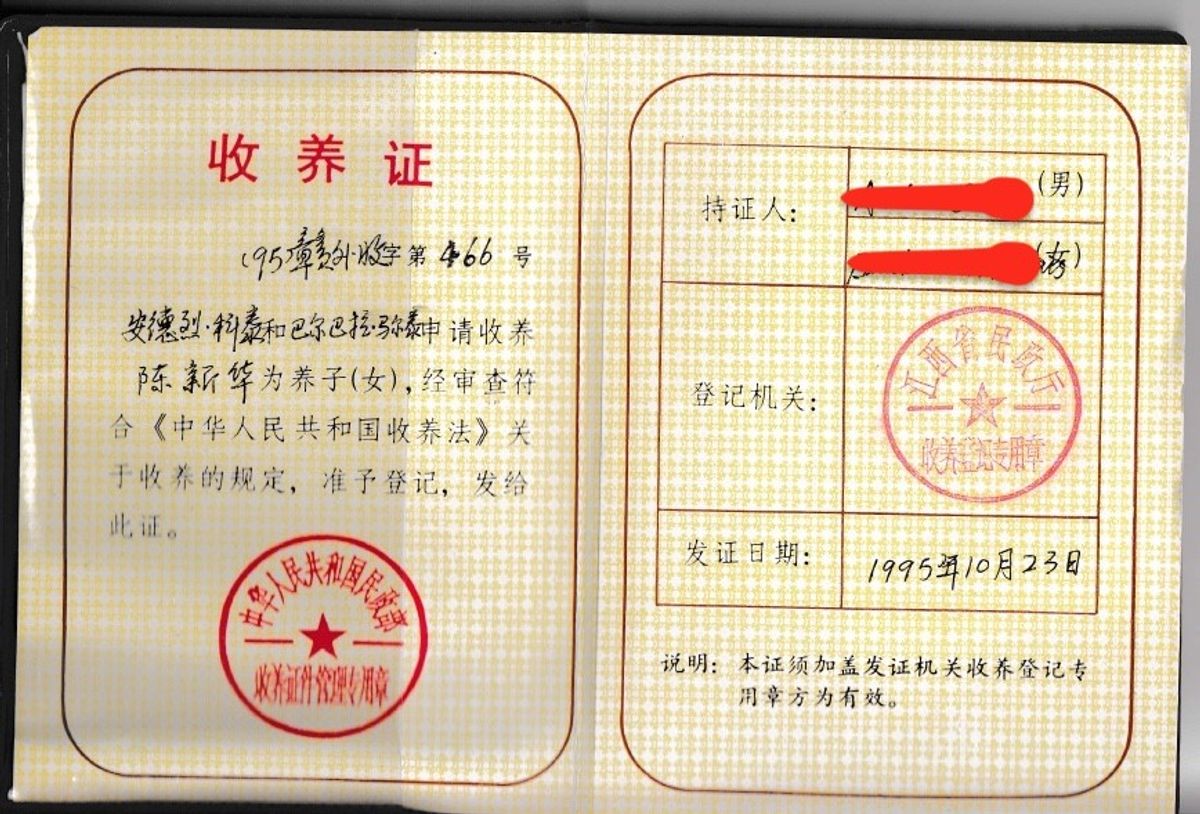 收养证
(95)赣外收字第466号
安德烈·科泰和巴尔巴拉·弥泰申请收养
陈新华为养子(女),经审查符
合《中华人民共和国收养法》关
于收养的规定,准予登记,发给
此证。
中华人民共和国民政部
收养证件管理专用章
持证人:
(男)
(女)
登记机关:
江西省民政厅
收养登记专用章
发证日期:
1995年10月23日
说明:本证须加盖发证机关收养登记专
用章方为有效。